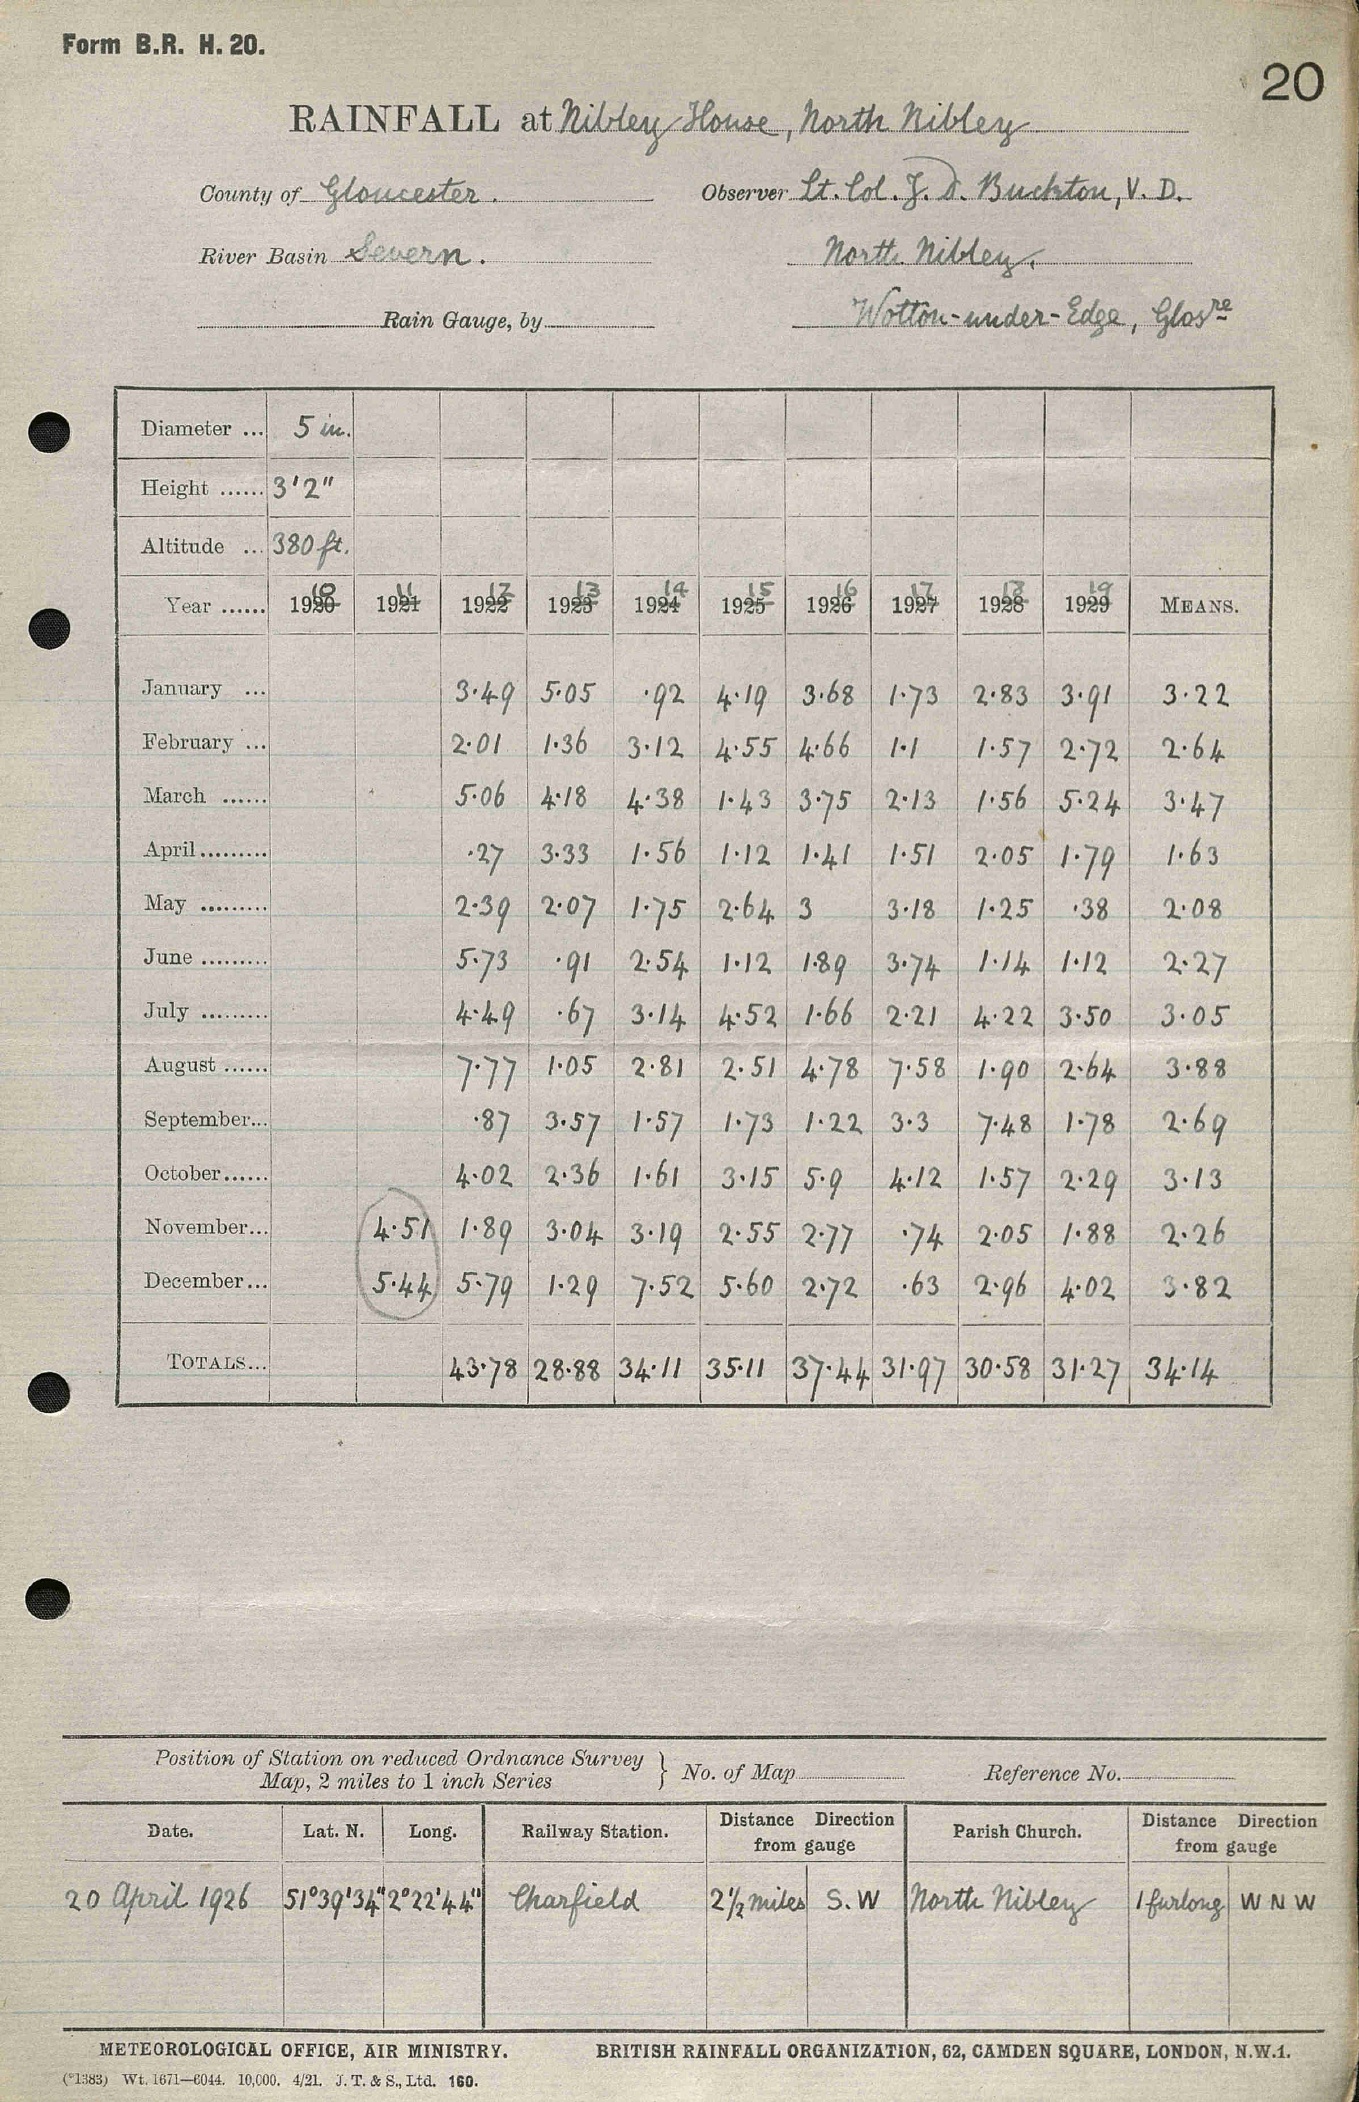 Form B.R. H. 20.
20
RAINFALL at Nibley House, North Nibley
County of Gloucester. Observer Lt. Col. J. D. Buckton, V. D.
River Basin Severn. North Nibley.
Rain Gauge, by Wotton-under-Edge, Glosre
Diameter ... 5 in.
Height ...... 3'2"
Altitude ... 380 ft.
10 11 12 13 14 15 16 17 18 19
Year ...... 1920 1921 1922 1923 1924 1925 1926 1927 1928 1929 MEANS.
January ... 3.49 5.05 .92 4.19 3.68 1.73 2.83 3.91 3.22
February ... 2.01 1.36 3.12 4.55 4.66 1.1 1.57 2.72 2.64
March ...... 5.06 4.18 4.38 1.43 3.75 2.13 1.56 5.24 3.47
April ......... .27 3.33 1.56 1.12 1.41 1.51 2.05 1.79 1.63
May ......... 2.39 2.07 1.75 2.64 3 3.18 1.25 .38 2.08
June ......... 5.73 .91 2.54 1.12 1.89 3.74 1.14 1.12 2.27
July ......... 4.49 .67 3.14 4.52 1.66 2.21 4.22 3.50 3.05
August ...... 7.77 1.05 2.81 2.51 4.78 7.58 1.90 2.64 3.88
September... .87 3.57 1.57 1.73 1.22 3.3 7.48 1.78 2.69
October...... 4.02 2.36 1.61 3.15 5.9 4.12 1.57 2.29 3.13
November... 4.51 1.89 3.04 3.19 2.55 2.77 .74 2.05 1.88 2.26
December... 5.44 5.79 1.29 7.52 5.60 2.72 .63 2.96 4.02 3.82
TOTALS... 43.78 28.88 34.11 35.11 37.44 31.97 30.58 31.27 34.14
Position of Station on reduced Ordnance Survey
Map, 2 miles to 1 inch Series } No. of Map Reference No.
Date. Lat. N. Long. Railway Station. Distance Direction from gauge Parish Church. Distance Direction from gauge
20 April 1926 51°39'34" 2°22'44" Charfield 2½ miles S.W North Nibley 1 furlong W N W
METEOROLOGICAL OFFICE, AIR MINISTRY. BRITISH RAINFALL ORGANIZATION, 62, CAMDEN SQUARE, LONDON, N.W.1.
(*1383) Wt. 1671—6044. 10,000. 4/21. J. T. & S., Ltd. 160.